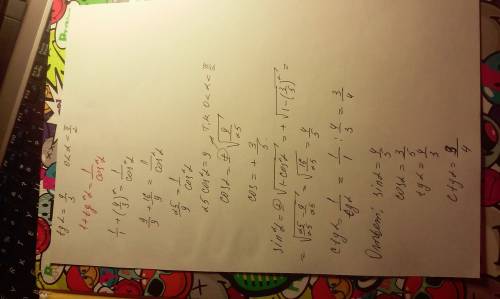 tgα = 4/3   0<α<π/2
1+tg²α = 1/cos²α
1/1 + (4/3)² = 1/cos²α
9/9 + 16/9 = 1/cos²α
25/9 = 1/cos²α
25 cos²α = 9   т.к. 0<α<π/2
cosα = ± √9/25
cos = + 3/5
sin²α = ± √1-cos²α = + √1-(3/5)² =
= √25/25 - 9/25 = √16/25 = 4/5
ctgα = 1/tgα = 1/1 : 4/3 = 3/4
Ответ: sinα = 4/5
cosα = 3/5
tgα = 4/3
ctgα = 3/4